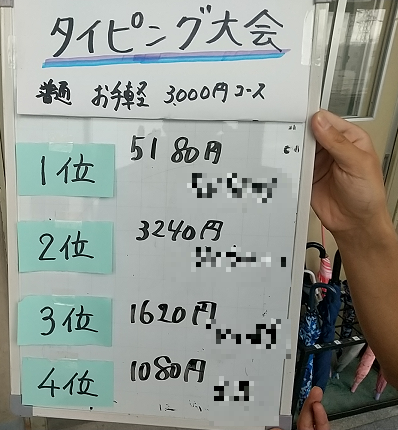 タイピング大会
普通 お手軽 3000円コース
1位 5180円
2位 3240円
3位 1620円
4位 1080円